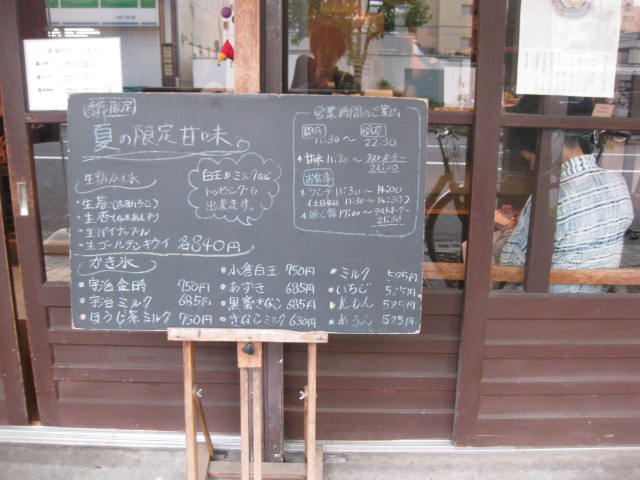 季節限定
夏の限定甘味
生氷
・生苺
・生杏
・生パイナップル
・生ゴールデンキウイ 各840円
白玉やミルクなど
トッピングも
出来ます。
かき氷
・宇治金時 750円
・宇治ミルク 685円
・ほうじ茶ミルク 750円
・小倉白玉 750円
・あずき 685円
・黒蜜きなこ 685円
・きなこミルク 630円
・ミルク 525円
・いちご 525円
・れもん 525円
・めろん 525円
営業時間のご案内
開店 11:30〜 閉店 22:30
・甘味 11:30〜 ラストオーダー 21:30
お食事
・ランチ 11:30〜14:00
(土日祝日 11:30〜14:30)
・晩ご飯 17:00〜ラストオーダー 21:30